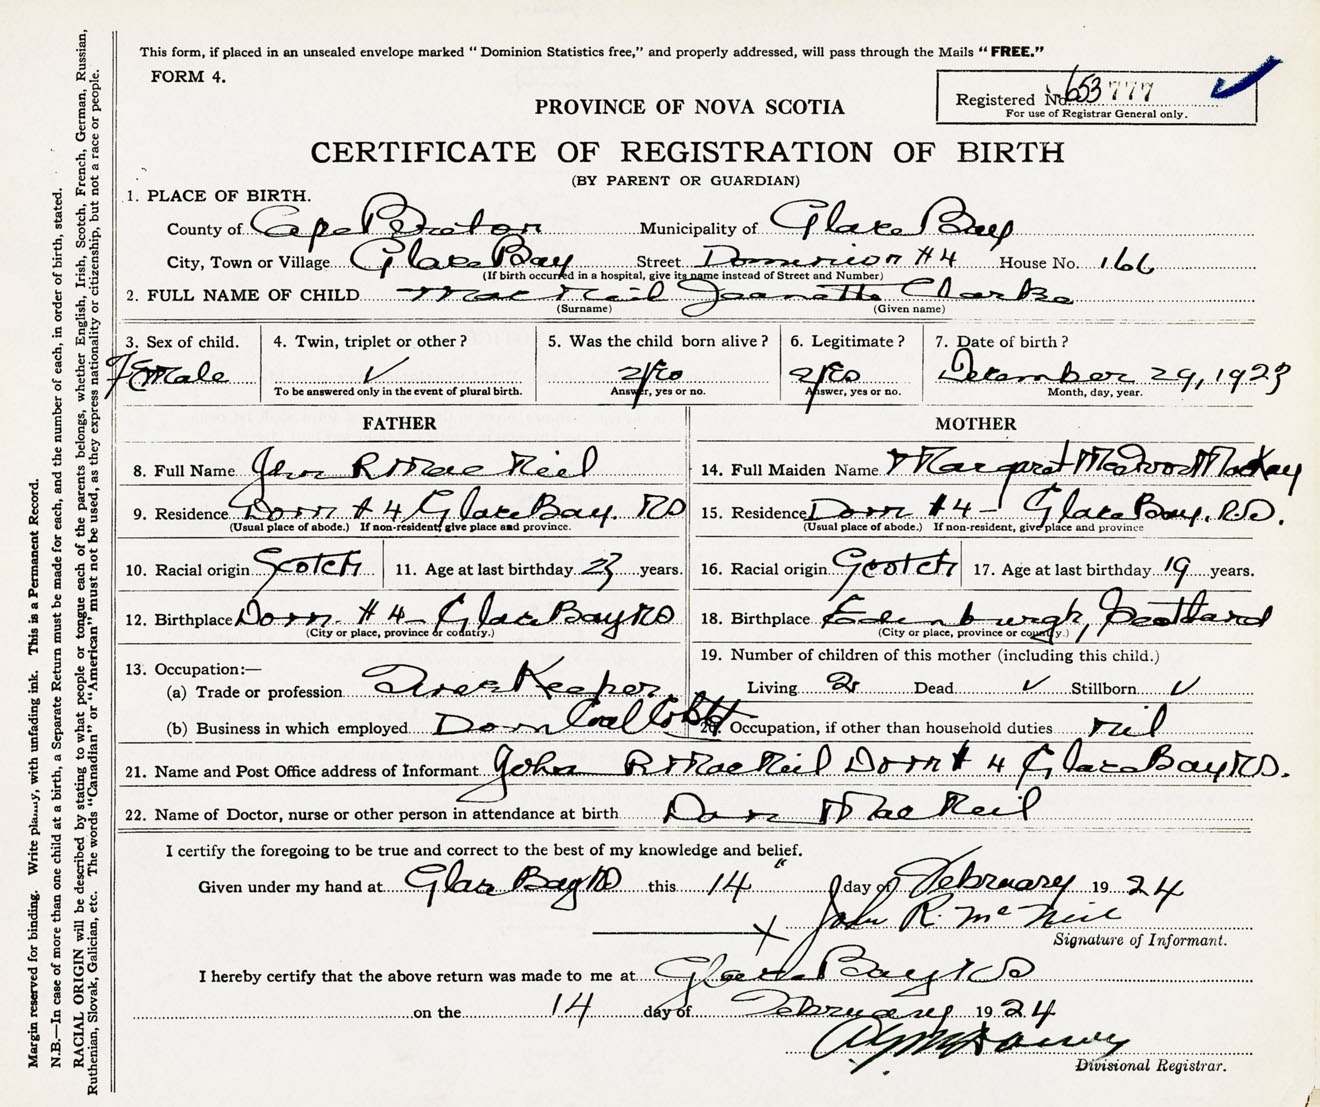 This form, if placed in an unsealed envelope marked "Dominion Statistics free," and properly addressed, will pass through the Mails "FREE."
FORM 4.
Registered No. 653777
For use of Registrar General only.
PROVINCE OF NOVA SCOTIA
CERTIFICATE OF REGISTRATION OF BIRTH
(BY PARENT OR GUARDIAN)
1. PLACE OF BIRTH.
County of Cape Breton Municipality of Glace Bay
City, Town or Village Glace Bay Street Dominion #4 House No. 166
(If birth occurred in a hospital, give its name instead of Street and Number)
2. FULL NAME OF CHILD MacNeil Jeanette Clarke
(Surname) (Given name)
3. Sex of child. 4. Twin, triplet or other? 5. Was the child born alive? 6. Legitimate? 7. Date of birth?
Female ✓ Yes Yes December 29, 1923
To be answered only in the event of plural birth. Answer, yes or no. Answer, yes or no. Month, day, year.
FATHER MOTHER
8. Full Name John R MacNeil 14. Full Maiden Name Margaret MacKay
9. Residence Dom #4 Glace Bay. NS 15. Residence Dom #4 - Glace Bay, N.S.
(Usual place of abode.) If non-resident, give place and province. (Usual place of abode.) If non-resident, give place and province
10. Racial origin Scotch 11. Age at last birthday 23 years. 16. Racial origin Scotch 17. Age at last birthday 19 years.
12. Birthplace Dom. #4 - Glace Bay NS 18. Birthplace Edenburgh, Scotland
(City or place, province or country.) (City or place, province or country.)
13. Occupation:— 19. Number of children of this mother (including this child.)
(a) Trade or profession Keeper Living 2 Dead ✓ Stillborn ✓
(b) Business in which employed Dom Coal Co 20. Occupation, if other than household duties nil
21. Name and Post Office address of Informant John R MacNeil Dom # 4 Glace Bay NS.
22. Name of Doctor, nurse or other person in attendance at birth Dan MacNeil
I certify the foregoing to be true and correct to the best of my knowledge and belief.
Given under my hand at Glace Bay NS this 14 day of February 1924
John R. McNeil
Signature of Informant.
I hereby certify that the above return was made to me at Glace Bay NS
on the 14 day of February 1924
Divisional Registrar.
Margin reserved for binding. Write plainly, with unfading ink. This is a Permanent Record.
N.B.—In case of more than one child at a birth, a Separate Return must be made for each, and the number of each, in order of birth, stated.
RACIAL ORIGIN will be described by stating to what people or tongue each of the parents belongs, whether English, Irish, Scotch, French, German, Russian,
Ruthenian, Slovak, Galician, etc. The words "Canadian" or "American" must not be used, as they express nationality or citizenship, but not a race or people.